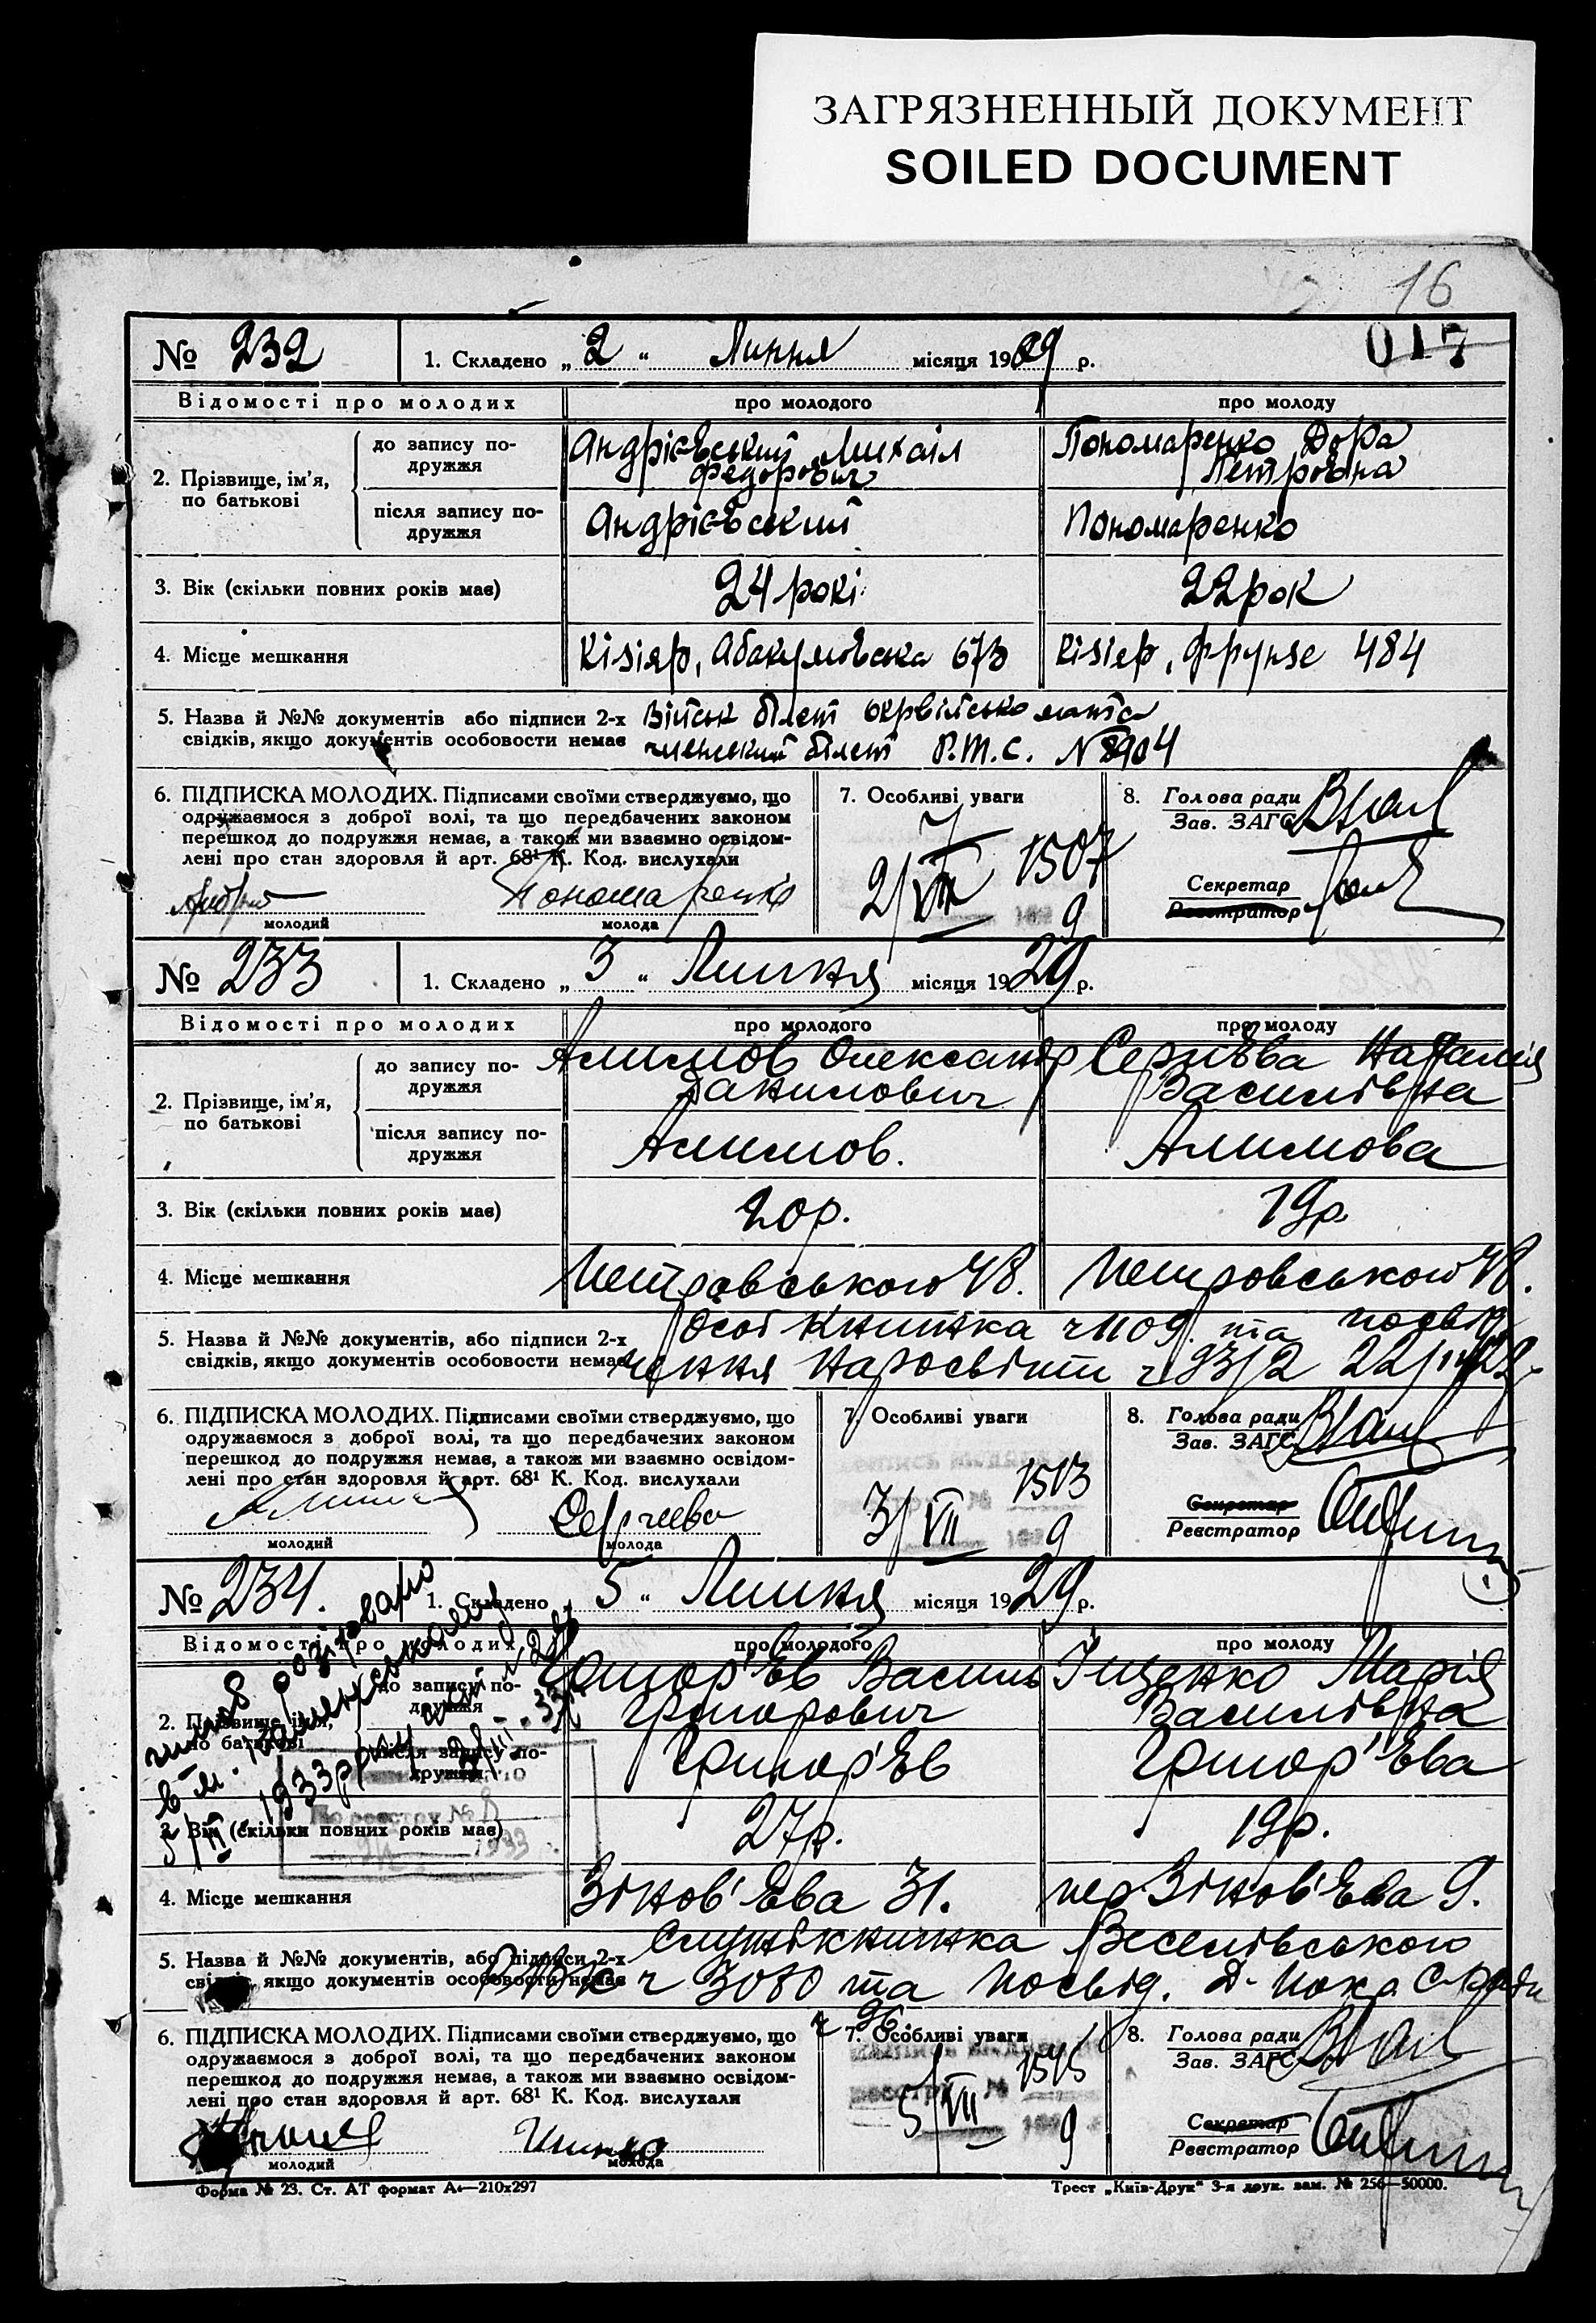 ЗАГРЯЗНЕННЫЙ ДОКУМЕНТ
SOILED DOCUMENT
16
017
№ 232
1. Складено „ 2 “ Липня місяця 1929 р.
Відомості про молодих
про молодого
про молоду
2. Прізвище, ім’я, по батькові
до запису по-
дружжя
Андрієвський Михаіл
Федорович
Пономаренко Дора
Петровна
після запису по-
дружжя
Андрієвський
Пономаренко
3. Вік (скільки повних років має)
24 рокі
22 рок
4. Місце мешкання
Кізіяр, Абакумовська 673
Кізіяр, Фрунзе 484
5. Назва й №№ документів або підписи 2-х
свідків, якщо документів особовости немає
Військ білет
членський білет Р.М.С. N 8904
6. ПІДПИСКА МОЛОДИХ. Підписами своїми стверджуємо, що
одружаємося з доброї волі, та що передбачених законом
перешкод до подружжя немає, а також ми взаємно освідом-
лені про стан здоровля й арт. 68¹ К. Код. вислухали
Пономаренко
молодий
молода
7. Особливі уваги
1507
2/VII 1929
8. Голова ради
Зав. ЗАГС
Секретар
Реєстратор
№ 233
1. Складено „ 3 “ Липня місяця 1929 р.
Відомості про молодих
про молодого
про молоду
2. Прізвище, ім’я, по батькові
до запису по-
дружжя
Алимов Олександр
Данилович
Сергієва Наталія
Василівна
після запису по-
дружжя
Алимов.
Алимова
3. Вік (скільки повних років має)
20р.
19р.
4. Місце мешкання
Петровського 48.
Петровського 48.
5. Назва й №№ документів, або підписи 2-х
свідків, якщо документів особовости немає
Особ книжка ч 1109. та посвід
чення Наросвіти ч 93/2 22/
6. ПІДПИСКА МОЛОДИХ. Підписами своїми стверджуємо, що
одружаємося з доброї волі, та що передбачених законом
перешкод до подружжя немає, а також ми взаємно освідом-
лені про стан здоровля й арт. 68¹ К. Код. вислухали
Сергиева
молодий
молода
7. Особливі уваги
1513
3/VII 1929
8. Голова ради
Зав. ЗАГС
Секретар
Реєстратор
№ 234.
1. Складено „ 5 “ Липня місяця 1929 р.
Відомості про молодих
про молодого
про молоду
2. Прізвище, ім’я,
по батькові
до запису по-
дружжя
Григор'єв Василь
Григорович
Іщенко Марія
Василівна
після запису по-
дружжя
Григор'єв
Григор'єва
По реестру № 8
1933
3. Вік (скільки повних років має)
27р.
19р.
4. Місце мешкання
Зінов'єва 31.
пер Зінов'єва 9.
5. Назва й №№ документів, або підписи 2-х
свідків, якщо документів особовости немає
Служкнижка Веселівського
РВК ч 3080 та посвід.
ч 96.
6. ПІДПИСКА МОЛОДИХ. Підписами своїми стверджуємо, що
одружаємося з доброї волі, та що передбачених законом
перешкод до подружжя немає, а також ми взаємно освідом-
лені про стан здоровля й арт. 68¹ К. Код. вислухали
молодий
молода
7. Особливі уваги
1515
5/VII 1929
8. Голова ради
Зав. ЗАГС
Секретар
Реєстратор
Форма № 23. Ст. АТ формат А₄—210х297
Трест „Київ-Друк“ 3-я друк. зам. № 256—50000.